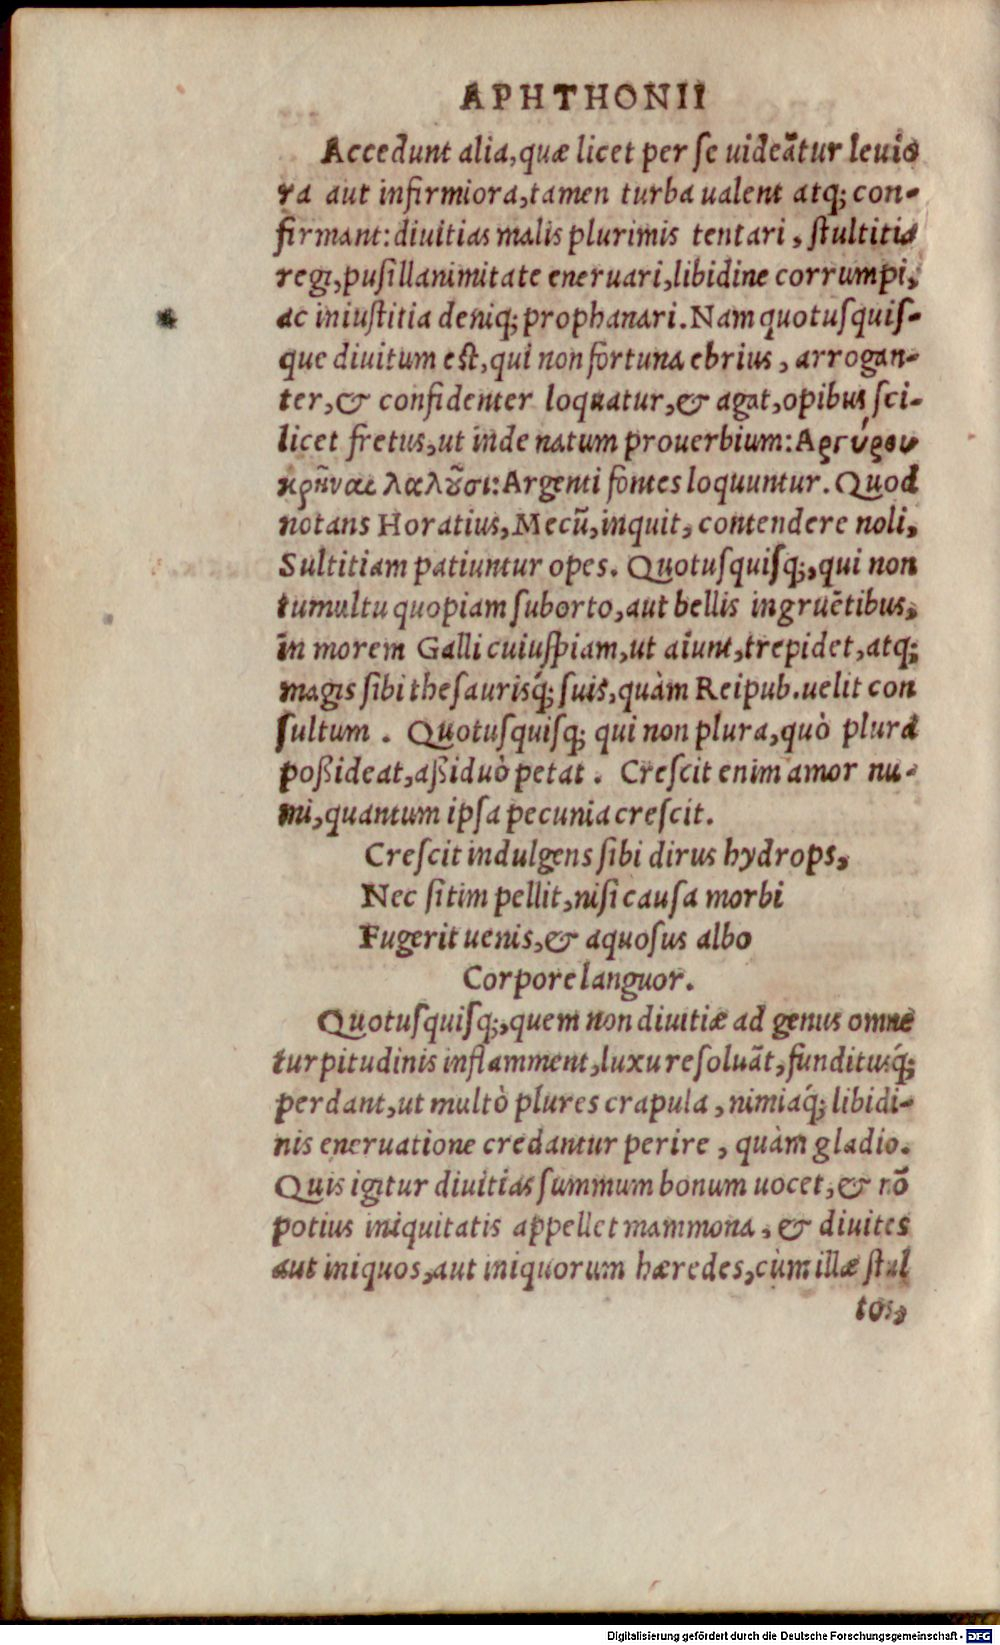 APHTHONII
Accedunt alia, quæ licet per se uideãtur leuio
ra aut infirmiora, tamen turba ualent atq; con-
firmant: diuitias malis plurimis tentari, stultitia
regi, pusillanimitate eneruari, libidine corrumpi,
ac iniustitia deniq; prophanari. Nam quotusquis-
que diuitum est, qui non fortuna ebrius, arrogan-
ter, & confidenter loquatur, & agat, opibus sci-
licet fretus, ut inde natum prouerbium: Αργύρου
κρῆναι λαλοῦσι: Argenti fontes loquuntur. Quod
notans Horatius, Mecũ, inquit, contendere noli,
Sultitiam patiuntur opes. Quotusquisq;, qui non
tumultu quopiam suborto, aut bellis ingruẽtibus,
in morem Galli cuiuspiam, ut aiunt, trepidet, atq;
magis sibi thesaurisq́; suis, quàm Reipub. uelit con
sultum. Quotusquisq; qui non plura, quò plura
poßideat, aßiduò petat. Crescit enim amor nu-
mi, quantum ipsa pecunia crescit.
Crescit indulgens sibi dirus hydrops,
Nec sitim pellit, nisi causa morbi
Fugerit uenis, & aquosus albo
Corpore languor.
Quotusquisq;, quem non diuitiæ ad genus omne
turpitudinis inflamment, luxu resoluãt, funditusq́;
perdant, ut multò plures crapula, nimiaq́; libidi-
nis eneruatione credantur perire, quàm gladio.
Quis igitur diuitias summum bonum uocet, & nõ
potius iniquitatis appellet mammona, & diuites
aut iniquos, aut iniquorum hæredes, cùm illæ stul
tos,
Digitalisierung gefördert durch die Deutsche Forschungsgemeinschaft - DFG